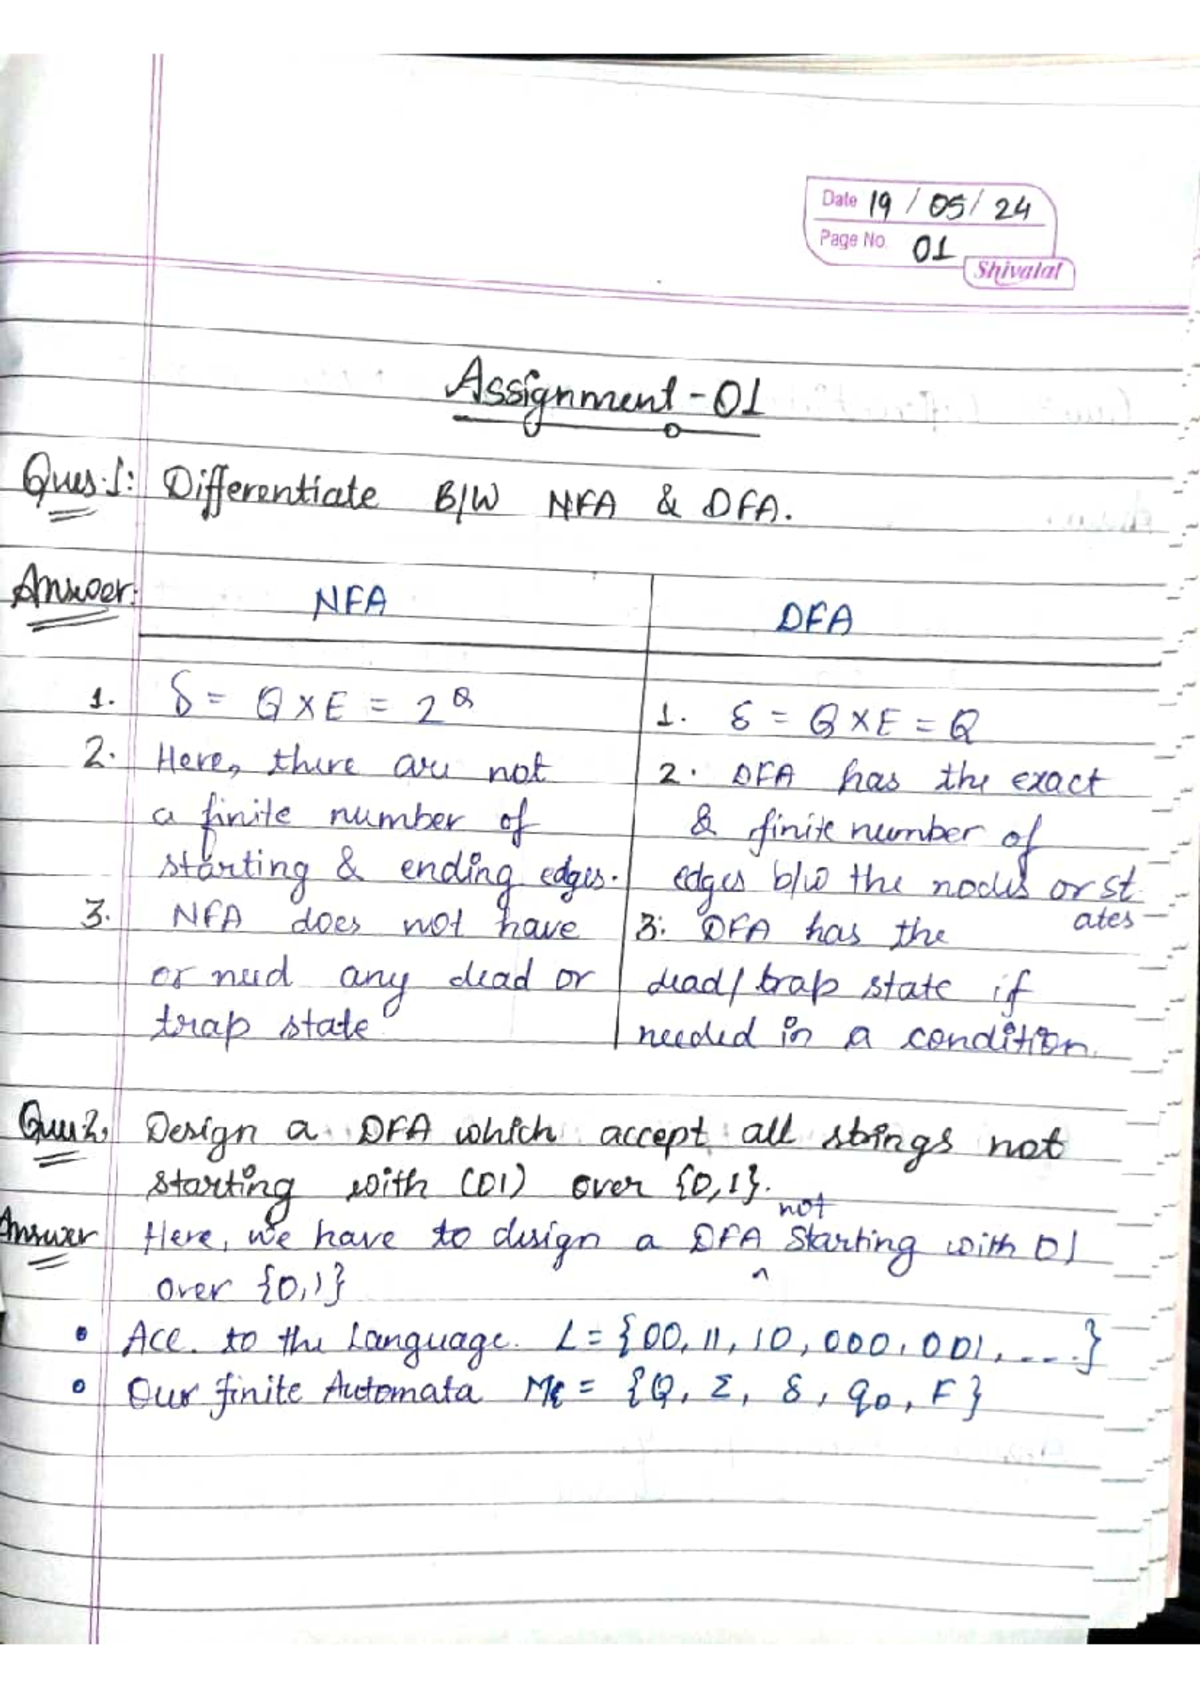 Date 19 / 05 / 24
Page No. 01
Shivalal
Assignment - 01
Ques.1: Differentiate B/W NFA & DFA.
Answer: NFA DFA
1. δ = Q X E = 2^Q
2. Here, there are not
a finite number of
starting & ending edges.
3. NFA does not have
or need any dead or
trap state
1. δ = Q X E = Q
2. DFA has the exact
& finite number of
edges b/w the nodes or st
ates
3. DFA has the
dead/trap state if
needed in a condition.
Ques 2. Design a DFA which accept all strings not
starting with (01) over {0,1}.
Answer Here, we have to design a DFA not starting with 01
over {0,1}
• Acc. to the Language. L = {00, 11, 10, 000, 001, ....}
• Our finite Automata = {Q, Σ, δ, q0, F}